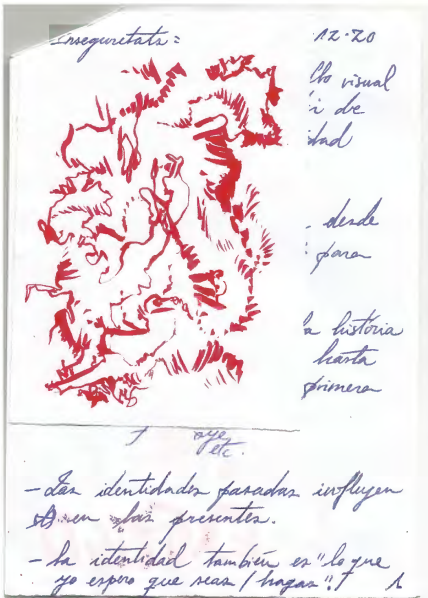 Inseguretats: 12-20
visual
i de
idad
desde
para
a història
hasta
primera
oye,
etc.
- Las identidades pasadas influyen
en las presentes.
- La identidad también es "lo que
yo espero que seas/hagas"!